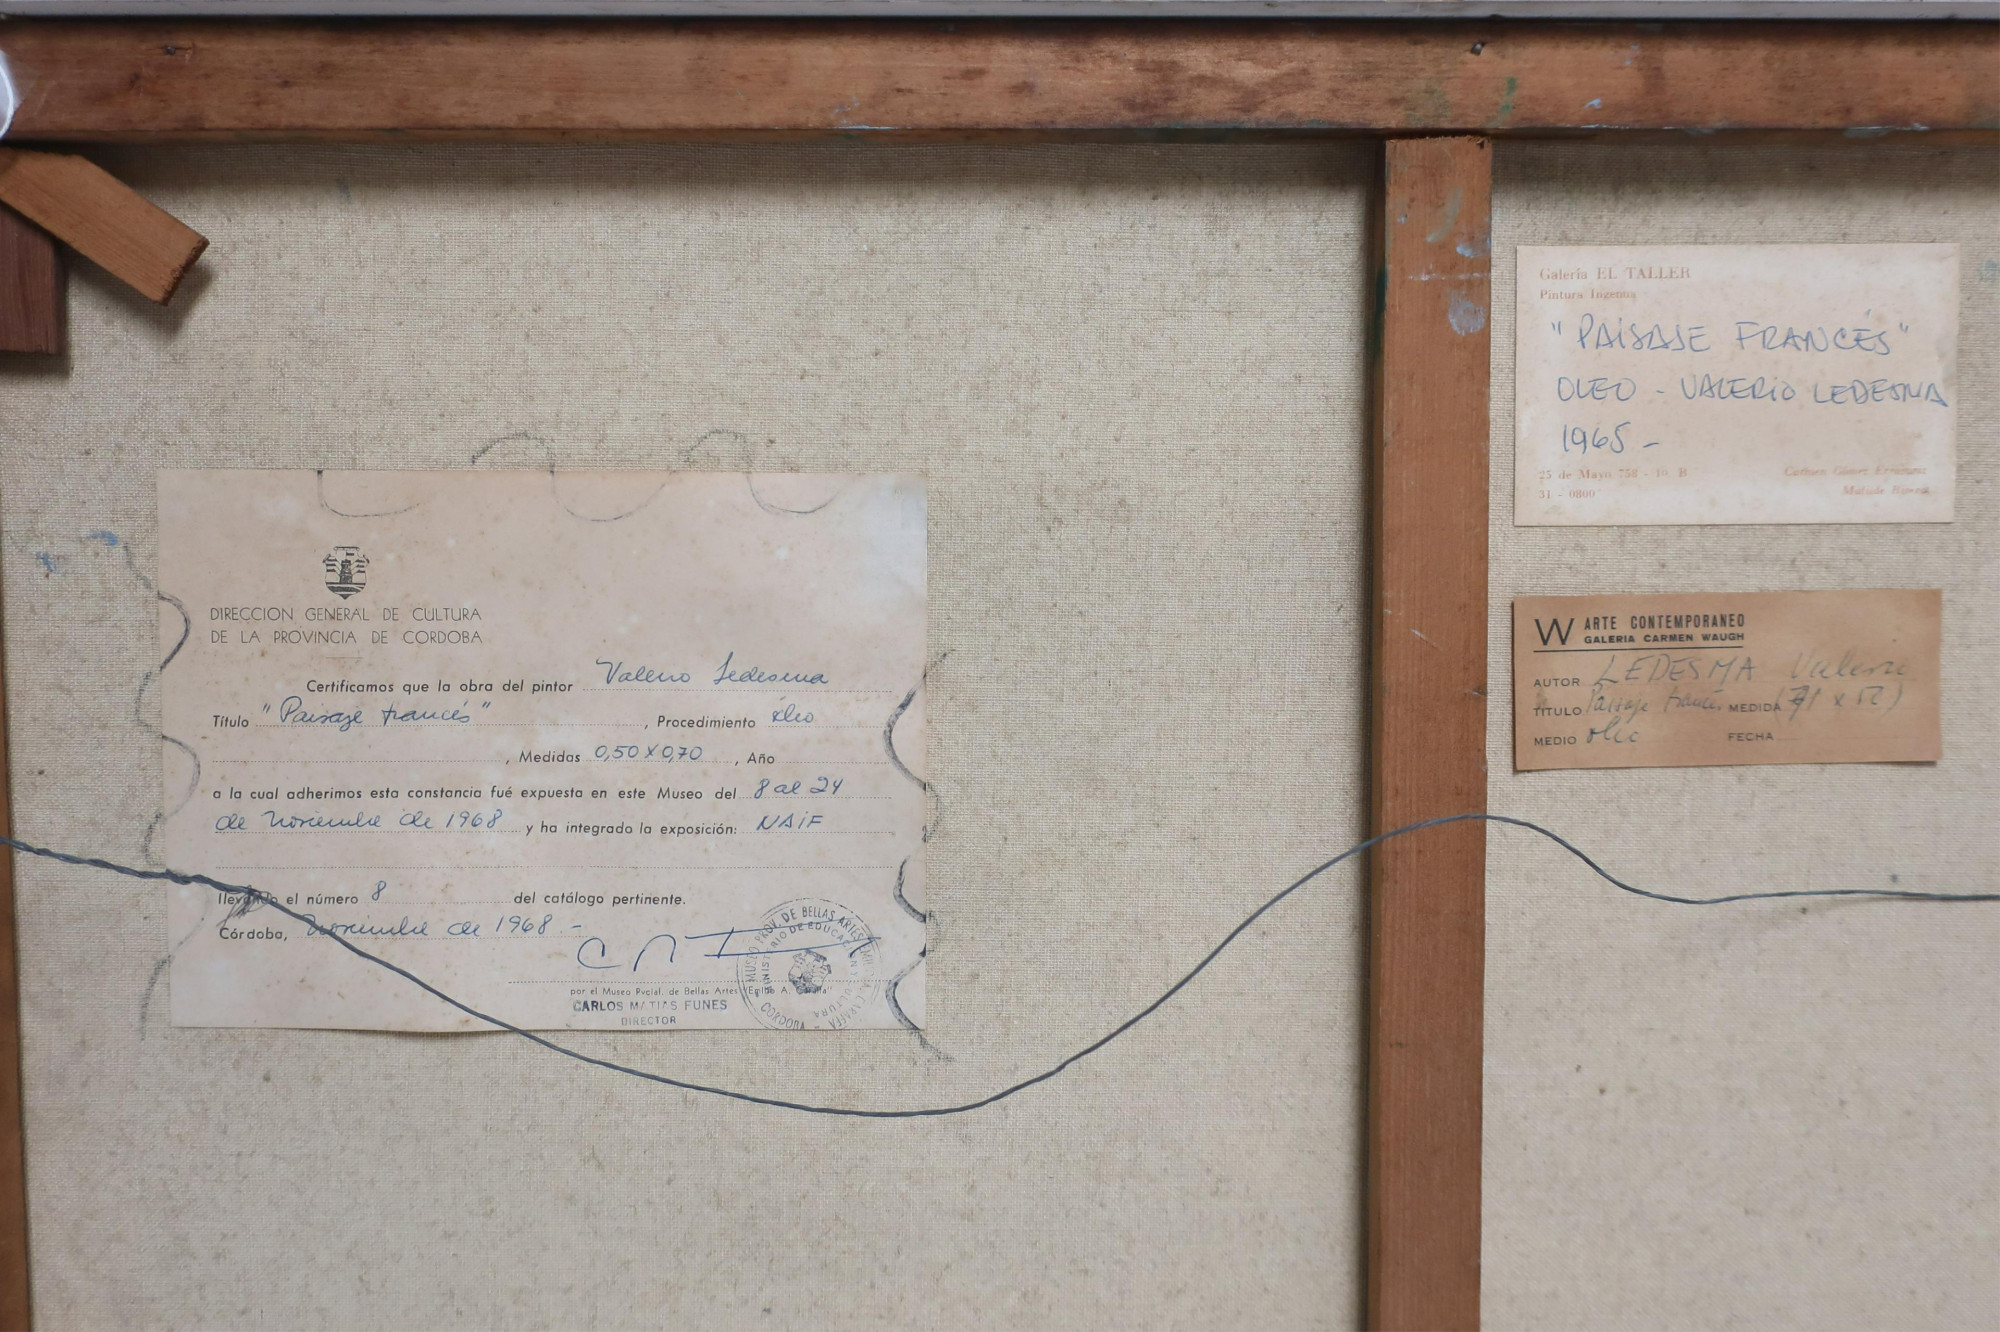 DIRECCION GENERAL DE CULTURA
DE LA PROVINCIA DE CORDOBA
Certificamos que la obra del pintor Valerio Ledesma
Título "Paisaje francés", Procedimiento óleo
, Medidas 0,50 X 0,70, Año
a la cual adherimos esta constancia fué expuesta en este Museo del 8 al 24
de Noviembre de 1968 y ha integrado la exposición: NAiF
llevando el número 8 del catálogo pertinente.
Córdoba, Noviembre de 1968.-
por el Museo Pvcial. de Bellas Artes "Emilio A. Caraffa"
CARLOS MATIAS FUNES
DIRECTOR
MUSEO PROV. DE BELLAS ARTES EMILIO A. CARAFFA - CORDOBA
MINISTERIO DE EDUCACION Y CULTURA
Galería EL TALLER
Pintura Ingenua
"PAISAJE FRANCÉS"
OLEO - VALERIO LEDESMA
1965 -
25 de Mayo 758 - 10. B
31 - 0800
W ARTE CONTEMPORANEO
GALERIA CARMEN WAUGH
AUTOR LEDESMA Valerio
TITULO Paisaje francés MEDIDA (71 x 52)
MEDIO oleo FECHA